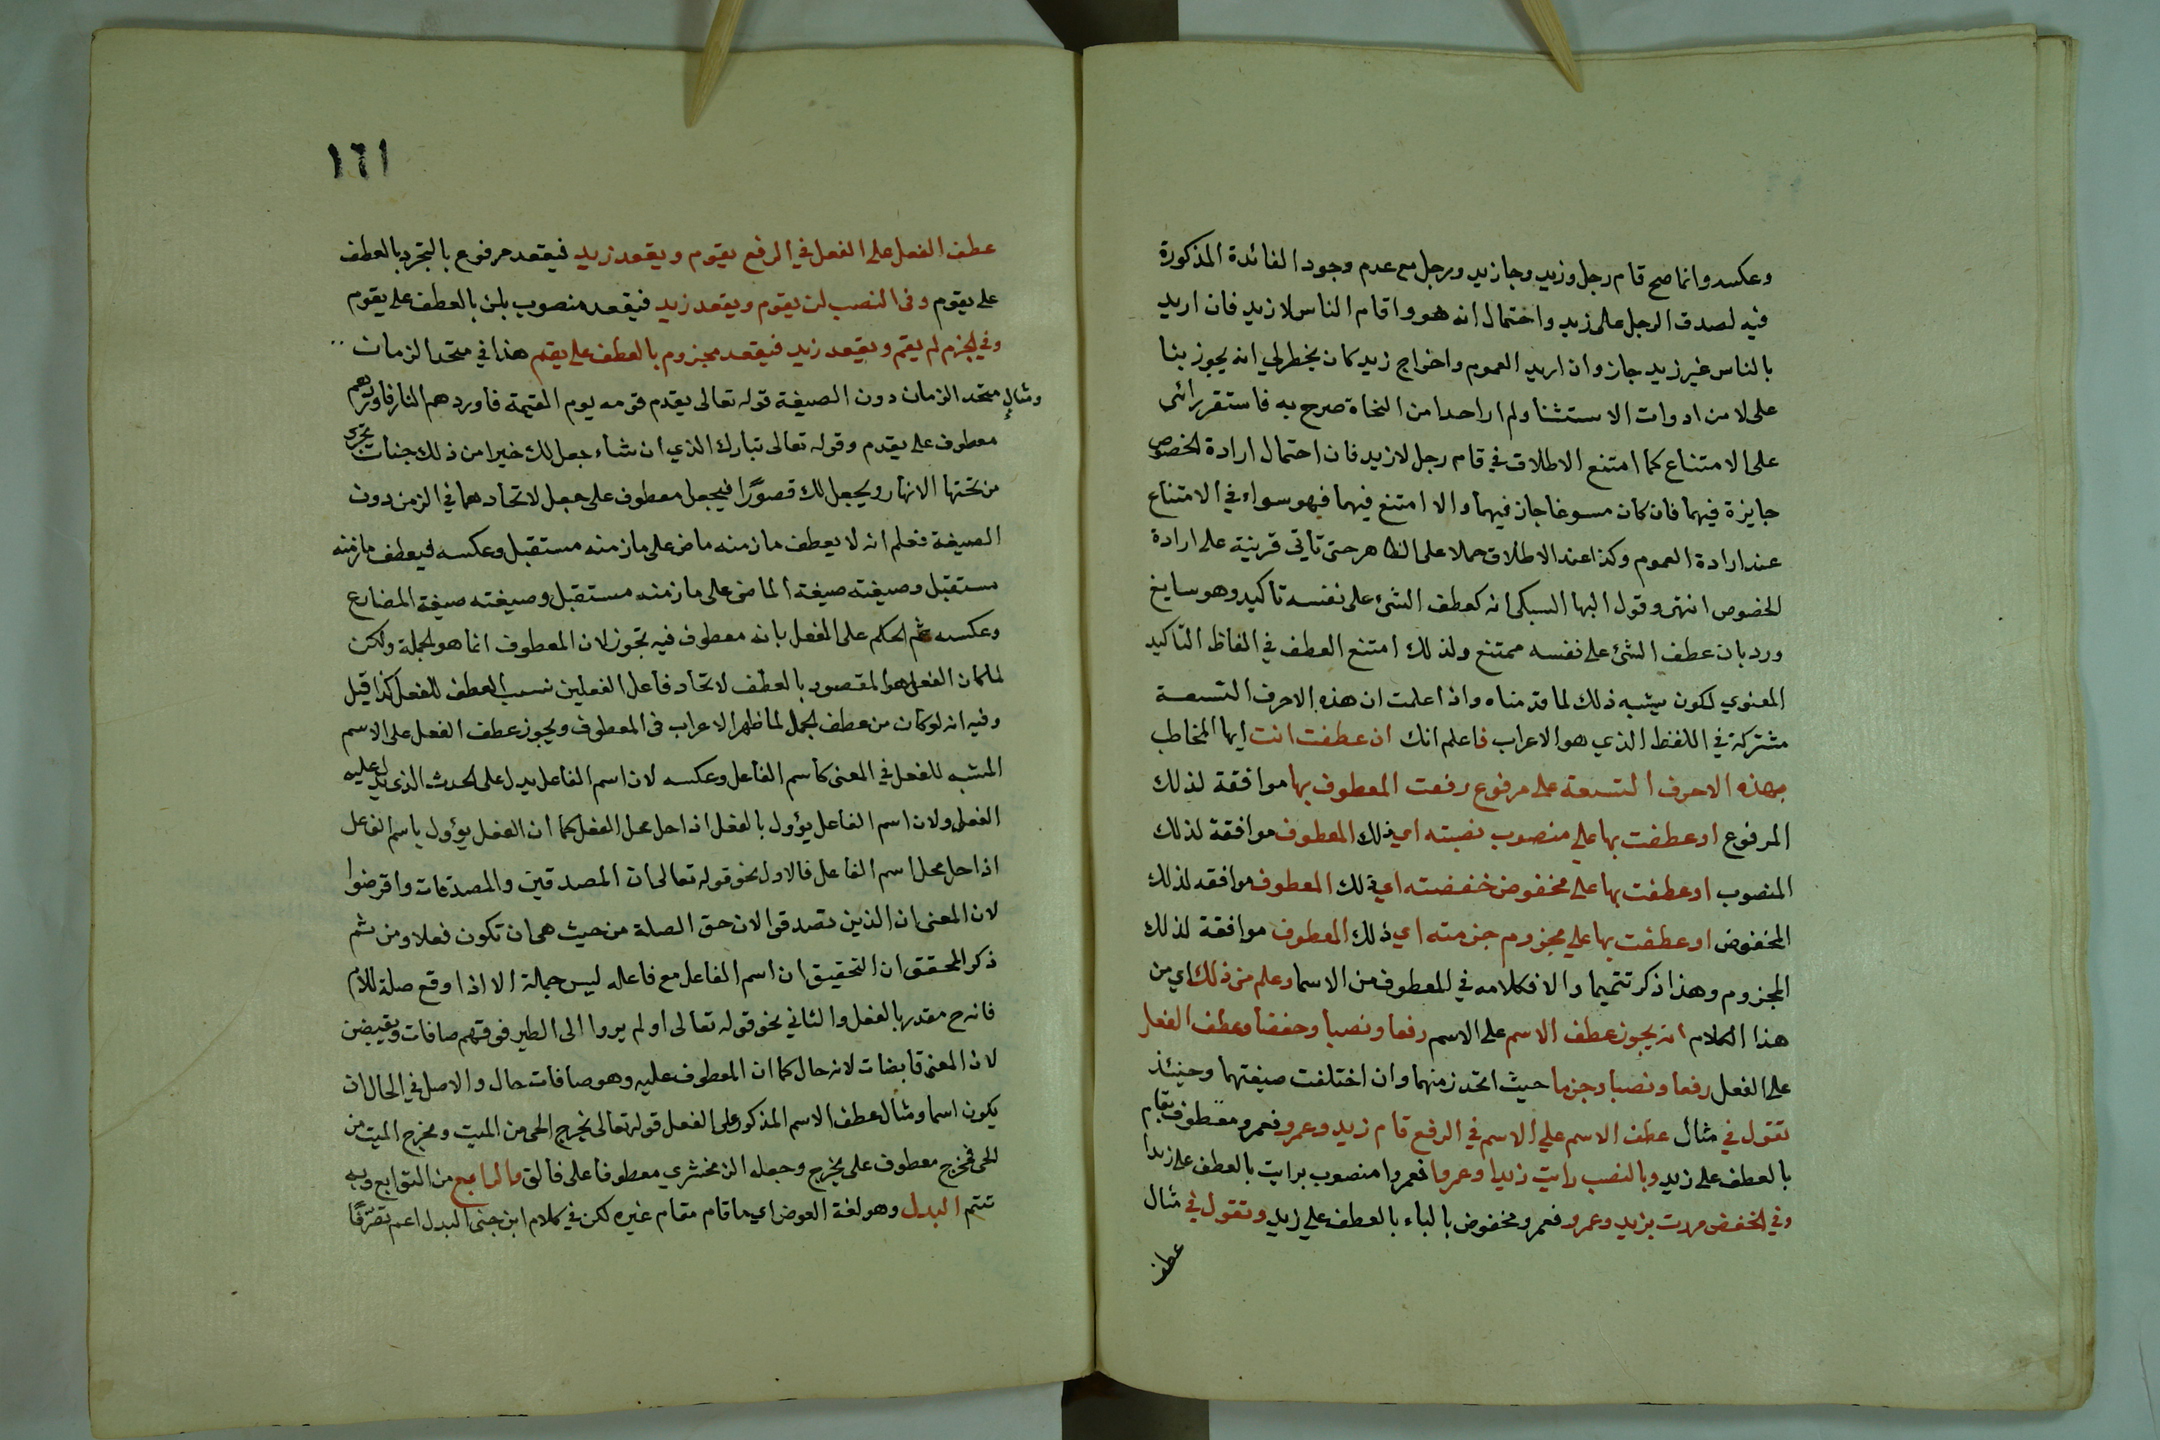 وعكسه وانما صح قام رجل وزيد وجا زيد ورجل مع عدم وجود الفائدة المذكورة
فيه لصدق الرجل على زيد واحتمال انه هو واقام الناس لا زيد فان اريد
بالناس غير زيد جاز وان اريد العموم واخراج زيد كان يخطر لي انه يجوز بنا
على لا من ادوات الاستثنا ولم ار احدا من النحاة صرح به فاستقر رائي
على الامتناع كما امتنع الاطلاق في قام رجل لا زيد فان احتمال ارادة الخصوص
جايزة فيهما فان كان مسوغا جاز فيهما والا امتنع فيهما فهو سواء في الامتناع
عند ارادة العموم وكذا عند الاطلاق حملا على الظاهر حتى تأتي قرينة على ارادة
الخصوص انتهى وقول البها السبكي انه كعطف الشئ على نفسه تاكيد وهو سايغ
ورد بان عطف الشئ على نفسه ممتنع ولذلك امتنع العطف في الفاظ التاكيد
المعنوي لكون يشبه ذلك لما قدمناه واذا علمت ان هذه الاحرف التسعة
مشتركة في اللفظ الذي هو الاعراب فاعلم انك ان عطفت انت ايها المخاطب
بهذه الاحرف التسعة على مرفوع رفعت المعطوف بها موافقة لذلك
المرفوع او عطفت بها على منصوب نصبته اي ذلك المعطوف موافقة لذلك
المنصوب او عطفت بها على مخفوض خفضته اي ذلك المعطوف موافقه لذلك
المخفوض او عطفت بها على مجزوم جزمته اي ذلك المعطوف موافقة لذلك
المجزوم وهذا ذكر تتميما والا فكلامه في المعطوف من الاسما وعلم من ذلك اي من
هذا الكلام انه يجوز عطف الاسم على الاسم رفعا ونصبا وخفضا وعطف الفعل
على الفعل رفعا ونصبا وجزما حيث اتحد زمنهما وان اختلفت صيغتهما وحينئذ
تقول في مثال عطف الاسم على الاسم في الرفع قام زيد وعمرو فعمرو معطوف بقام
بالعطف على زيد وبالنصب رايت زيدا وعمروا فعمروا منصوب برايت بالعطف على زيدا
وفي الخفض مررت بزيد وعمرو فعمرو مخفوض بالباء بالعطف على زيد وتقول في مثال
عطف
١٦١
عطف الفعل على الفعل في الرفع يقوم ويقعد زيد فيقعد مرفوع بالتجرد بالعطف
على يقوم وفى النصب لن يقوم ويقعد زيد فيقعد منصوب بلن بالعطف على يقوم
وفي الجزم لم يقم ويقعد زيد فيقعد مجزوم بالعطف على يقم هذا في متحد الزمان
ومثال متحد الزمان دون الصيغة قوله تعالى يقدم قومه يوم القيمة فاوردهم النار فاوردهم
معطوف على يقدم وقوله تعالى تبارك الذي ان شاء جعل لك خيرا من ذلك جنات تجري
من تحتها الانهار ويجعل لك قصورًا فيجعل معطوف على جعل لاتحادهما في الزمن دون
الصيغة فعلم انه لا يعطف ما زمنه ماض على ما زمنه مستقبل وعكسه فيعطف ما زمنه
مستقبل وصيغته صيغة الماضى على ما زمنه مستقبل وصيغته صيغة المضارع
وعكسه ثم الحكم على الفعل بانه معطوف فيه تجوز لان المعطوف انما هو الجملة ولكن
لما كان الفعل هو المقصود بالعطف لاتحاد فاعل الفعلين نسب العطف للفعل كذا قيل
وفيه انه لو كان من عطف الجمل لما ظهر الاعراب فى المعطوف ويجوز عطف الفعل على الاسم
المشبه للفعل في المعنى كاسم الفاعل وعكسه لان اسم الفاعل يدل على الحدث الذي يدل عليه
الفعل ولان اسم الفاعل يؤول بالفعل اذا حل محل الفعل كما ان الفعل يؤول باسم الفاعل
اذا حل محل اسم الفاعل فالاول نحو قوله تعالى ان المصدقين والمصدقات واقرضوا
لان المعنى ان الذين تصدقوا لان حق الصلة من حيث هى ان تكون فعلا ومن ثم
ذكر المحقق ان التحقيق ان اسم الفاعل مع فاعله ليس جملة الا اذا وقع صلة للام
فانه ح مقدر بالفعل والثاني نحو قوله تعالى اولم يروا الى الطير فوقهم صافات ويقبضن
لان المعنى قابضات لانه حال كما ان المعطوف عليه وهو صافات حال والاصل في الحال ان
يكون اسما ومثال عطف الاسم المذكور على الفعل قوله تعالى يخرج الحى من الميت ومخرج الميت من
الحى فمخرج معطوف على يخرج وجعله الزمخشري معطوفا على فالق والرابع من التوابع وبه
تتم البدل وهو لغة العوض اي ما قام مقام غيره لكن في كلام ابن جنى البدل اعم تصرّفًا